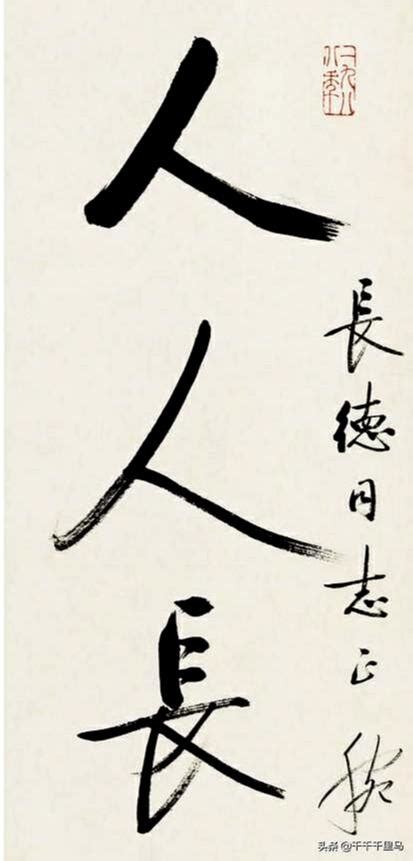 長德同志正
人人長
头条 @千千千里马